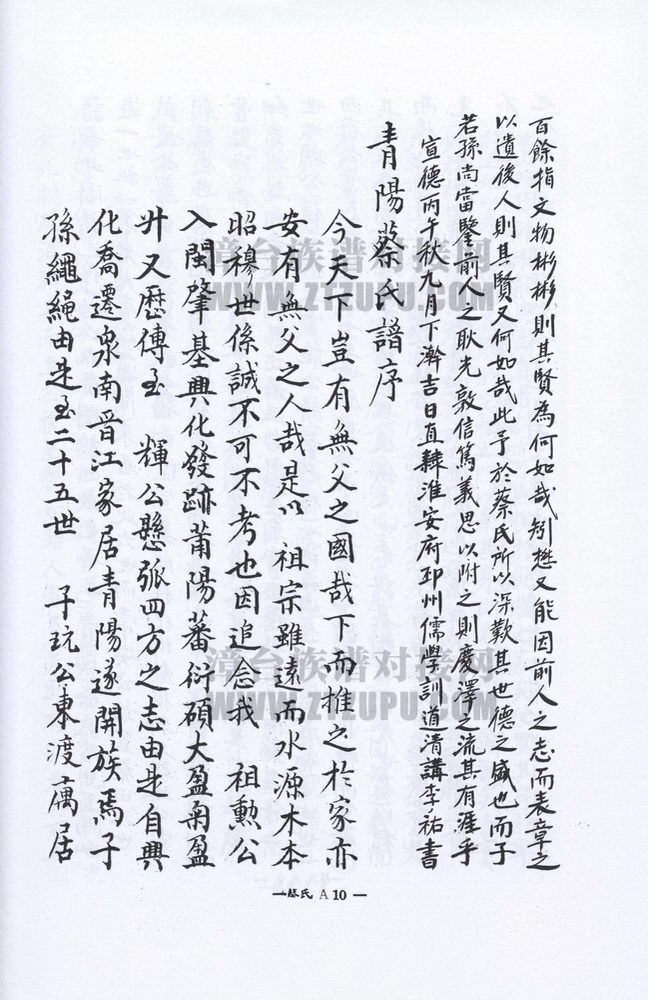 百餘指文物彬彬則其賢為何如哉矧懋又能因前人之志而表章之
以遺後人則其賢又何如哉此予於蔡氏所以深歎其世德之盛也而于
若孫尚當鑒前人之耿光敦信篤義思以附之則慶澤之流其有涯乎
宣德丙午秋九月下澣吉日直隸淮安府邳州儒學訓道清講李祐書
青陽蔡氏譜序
今天下豈有無父之國哉下而推之於家亦
安有無父之人哉是以 祖宗雖遠而水源木本
昭穆世係誠不可不考也因追念我 祖勲公
入閩肇基興化發跡莆陽蕃衍碩大盈匊盈
升又歷傳至 輝公懸弧四方之志由是自興
化喬遷泉南晉江家居青陽遂開族焉子
孫繩繩由是至二十五世 子玩公東渡寓居
漳台族谱对接网
WWW.ZTZUPU.COM
漳台族谱对接网
WWW.ZTZUPU.COM
—蔡氏 A 10 —